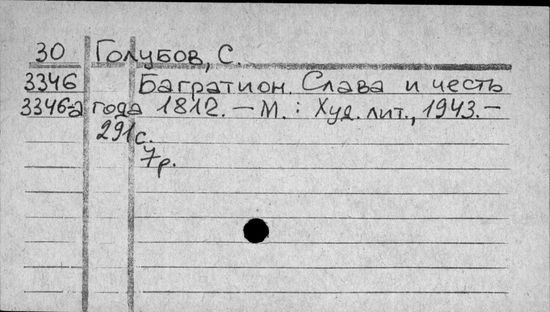 30 Голубов, С.
3346 Багратион. Слава и честь
3346-а года 1812. – М. : Худ. лит., 1943. –
291 с.
7р.